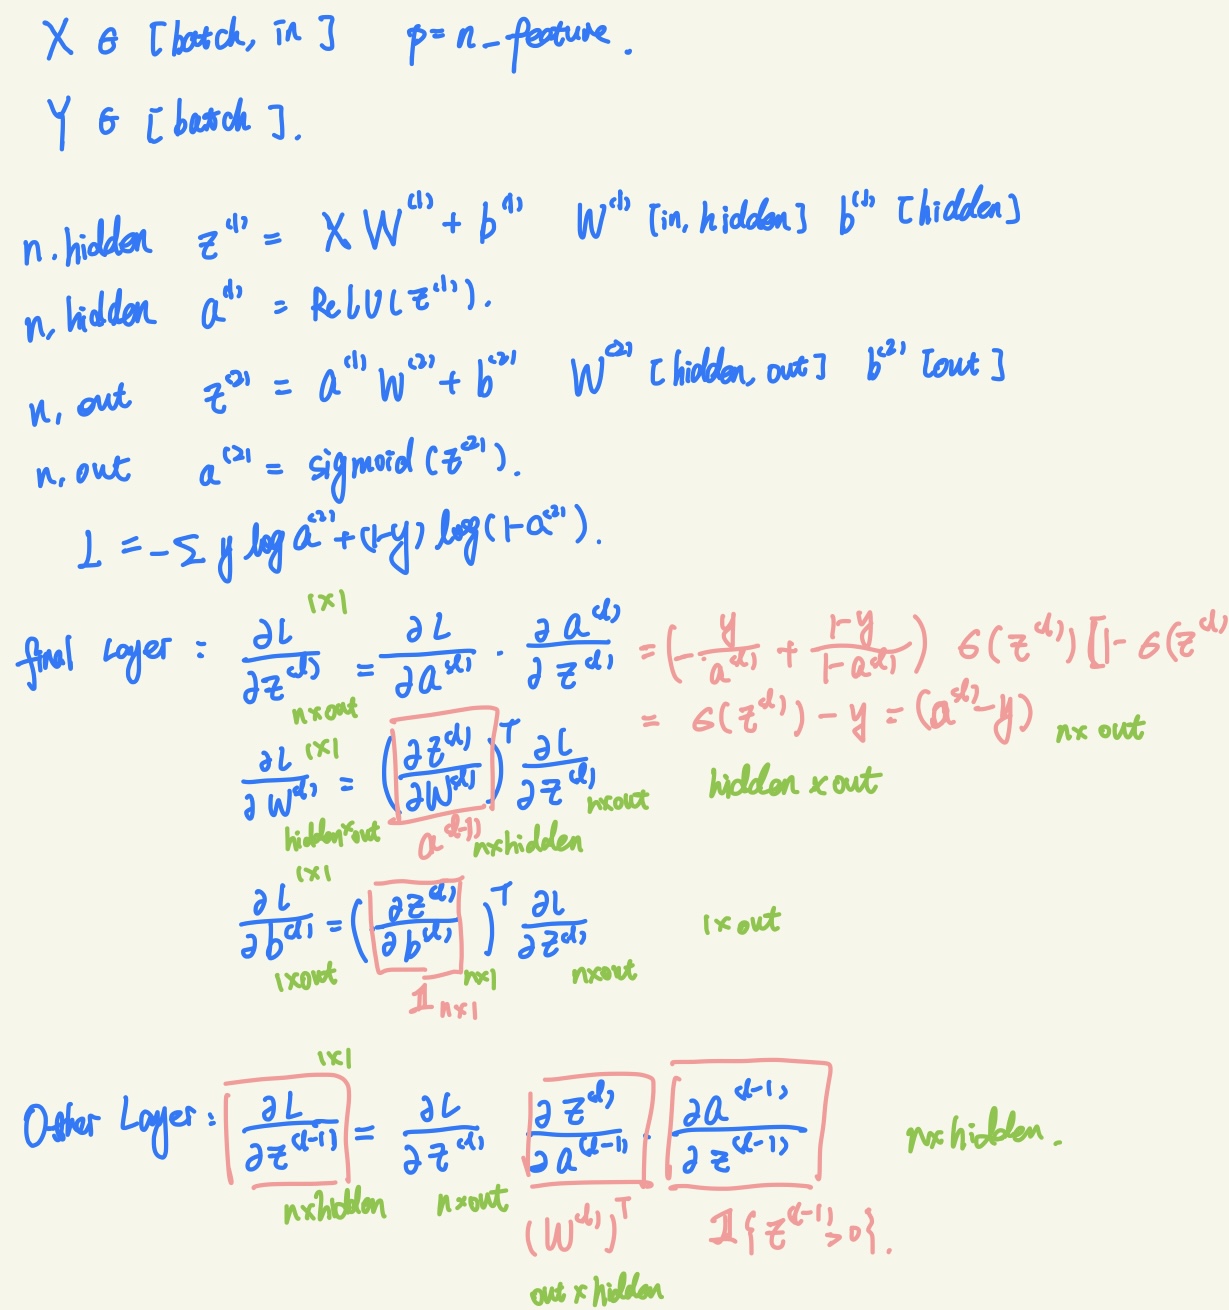 X ∈ [batch, in] p = n_feature.
Y ∈ [batch].
n. hidden z^(1) = X W^(1) + b^(1) W^(1) [in, hidden] b^(1) [hidden]
n, hidden a^(1) = ReLU(z^(1)).
n, out z^(2) = a^(1) W^(2) + b^(2) W^(2) [hidden, out] b^(2) [out]
n, out a^(2) = sigmoid(z^(2)).
L = -Σ y log a^(2) + (1-y) log(1-a^(2)).
1×1
final Layer: ∂L/∂z^(l) = ∂L/∂a^(l) · ∂a^(l)/∂z^(l) = (-y/a^(l) + 1-y/1-a^(l)) σ(z^(l)) [1-σ(z^(l)
n×out = σ(z^(l)) - y = (a^(l) - y) n×out
1×1
∂L/∂W^(l) = (∂z^(l)/∂W^(l))^T ∂L/∂z^(l) n×out hidden × out
hidden×out a^(l-1) n×hidden
1×1
∂L/∂b^(l) = (∂z^(l)/∂b^(l))^T ∂L/∂z^(l) 1×out
1×out n×1 n×out
1 n×1
1×1
Other Layer: ∂L/∂z^(l-1) = ∂L/∂z^(l) ∂z^(l)/∂a^(l-1) · ∂a^(l-1)/∂z^(l-1) n×hidden.
n×hidden n×out (W^(l))^T 1{z^(l-1)>0}.
out × hidden